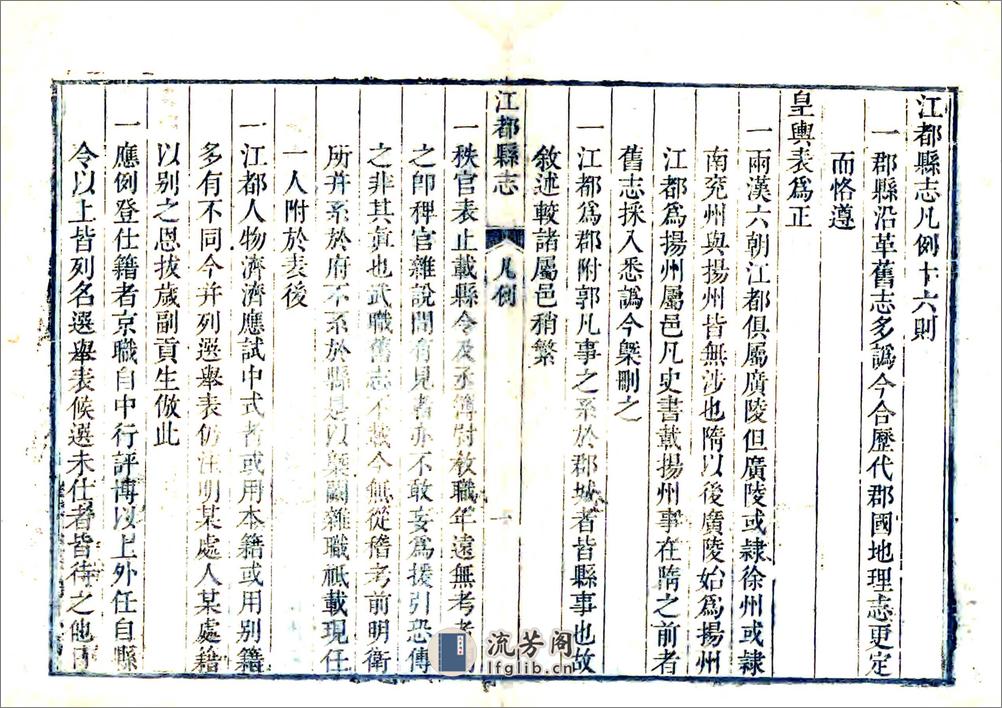 江都縣志凡例十六則
一郡縣沿革舊志多譌今合歷代郡國地理志更定
而恪遵
皇輿表爲正
一兩漢六朝江都俱屬廣陵但廣陵或隸徐州或隸
南兗州與揚州皆無涉也隋以後廣陵始爲揚州
江都爲揚州屬邑凡史書載揚州事在隋之前者
舊志採入悉譌今槩刪之
一江都爲郡附郭凡事之系於郡城者皆縣事也故
敘述較諸屬邑稍繁
江都縣志
凡例
一
一秩官表止載縣令及丞簿尉教職年遠無考者
之師稗官雜說間有見者亦不敢妄爲援引恐傳
之非其眞也武職舊志不載今無從稽考前明衛
所幷系於府不系於縣是以槩闕雜職祇載現任
一人附於表後
一江都人物濟濟應試中式者或用本籍或用別籍
多有不同今幷列選舉表仍注明某處人某處籍
以别之恩拔歲副貢生倣此
一應例登仕籍者京職自中行評博以上外任自縣
令以上皆列名選舉表候選未仕者皆待之他日
流芳阁
lfglib.cn